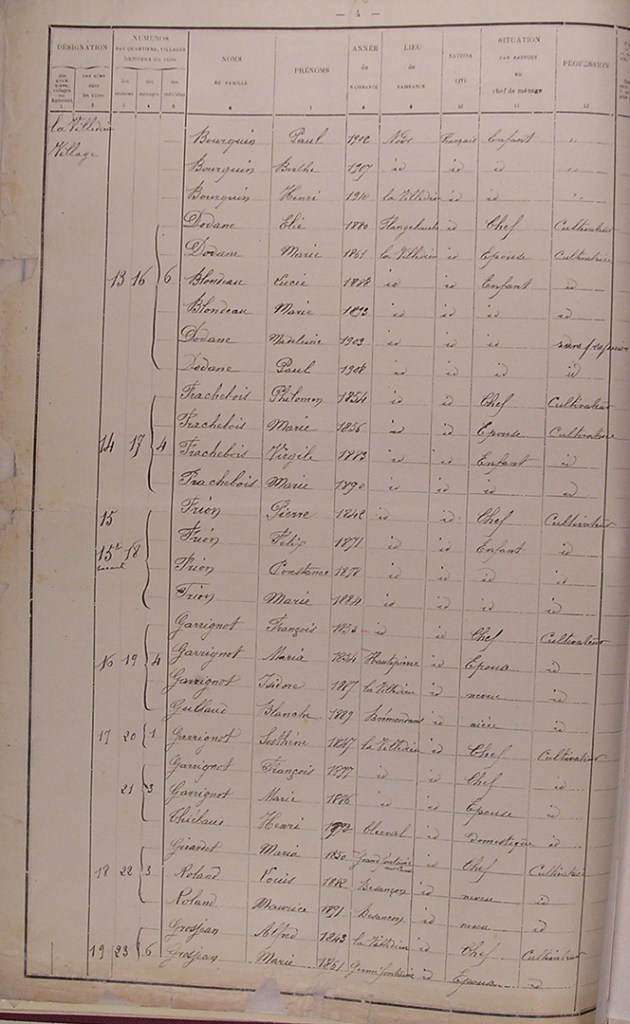 — 4 —
DÉSIGNATION
NUMÉROS
PAR QUARTIERS, VILLAGES
NOMS
DE FAMILLE
PRÉNOMS
ANNÉE
de
NAISSANCE
LIEU
de
NAISSANCE
NATIONA
LITÉ
SITUATION
PAR RAPPORT
au
chef de ménage
PROFESSION
la Villedieu
Village
Bourquin Paul 1902 Français Enfant "
Bourquin Berthe 1907 id id id "
Bourquin Henri 1910 la Villedieu id id "
Dodane Elie 1880 id Chef Cultivateur
Dodane Marie 1861 la Villedieu id Epouse Cultivatrice
13 16 6 Blondeau Lucie 1888 id id Enfant id
Blondeau Marie 1893 id id id id
Dodane Madeleine 1903 id id id
Dodane Paul 1908 id id id id
Frachebois Philomen 1854 id id Chef Cultivateur
Frachebois Marie 1856 id id Epouse Cultivatrice
14 17 4 Frachebois Virgile 1883 id id Enfant id
Frachebois Marie 1890 id id id id
15 Prion Pierre 1842 id id Chef Cultivateur
15 18 Prion Félix 1871 id id Enfant id
Prion Constance 1878 id id id id
Prion Marie 1884 id id id id
Garrignot François id id Chef Cultivateur
16 19 4 Garrignot Maria 1854 Hautepierre id Epouse id
Garrignot Isidore 1887 la Villedieu id neveu id
Guillaud Blanche 1889 id nièce id
17 20 1 Garrignot Sosthène 1847 la Villedieu id Chef Cultivateur
Garrignot François 1877 id id Chef id
21 3 Garrignot Marie 1886 id id Epouse id
Henri Clerval id domestique id
Girardet Maria 1850 Grandfontaine id Chef Cultivatrice
18 22 3 Roland Louis 1882 Besançon id neveu id
Roland Maurice 1891 Besançon id neveu id
Grosjean Alfred 1843 la Villedieu id Chef Cultivateur
19 23 6 Grosjean Marie 1861 id Epouse id